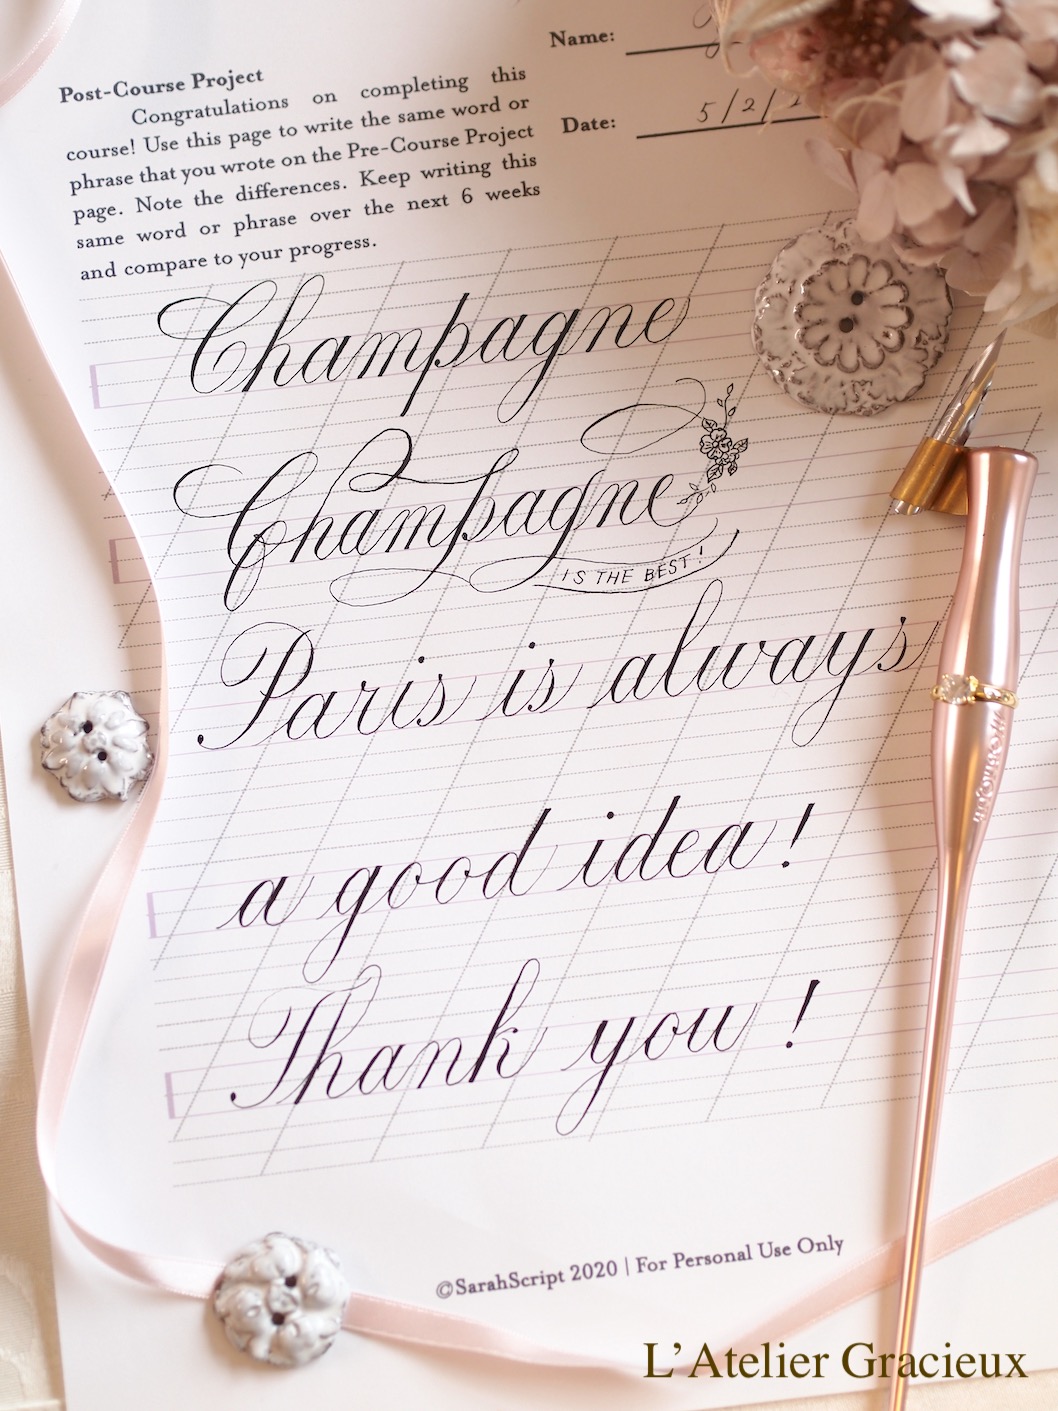 Post-Course Project
Congratulations on completing this
course! Use this page to write the same word or
phrase that you wrote on the Pre-Course Project
page. Note the differences. Keep writing this
same word or phrase over the next 6 weeks
and compare to your progress.
Name:
Date: 5/2/
Champagne
Champagne
IS THE BEST!
Paris is always
a good idea!
Thank you!
©SarahScript 2020 | For Personal Use Only
L'Atelier Gracieux